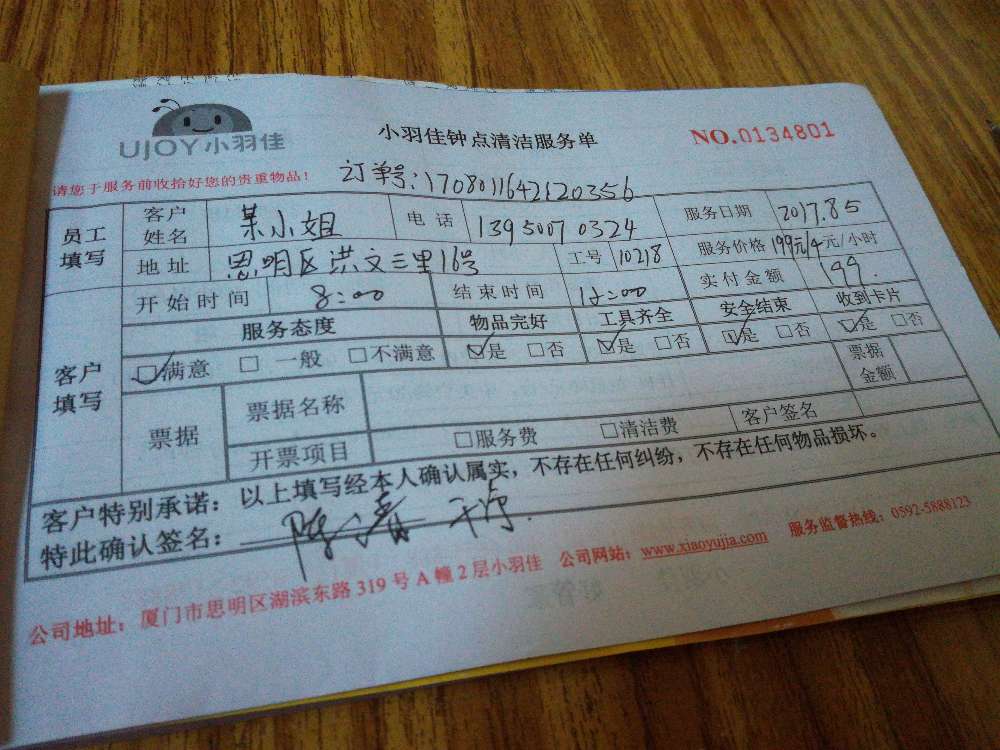 UJOY小羽佳
小羽佳钟点清洁服务单
NO.0134801
请您于服务前收拾好您的贵重物品！
订单号：1708011642120356
员工填写
客户姓名 某小姐 电话 13950070324 服务日期 2017.8.5
地址 思明区洪文三里16号 工号 10218 服务价格 199元/4元/小时
开始时间 8:00 结束时间 12:00 实付金额 199.
客户填写
服务态度 物品完好 工具齐全 安全结束 收到卡片
☑满意 □一般 □不满意 ☑是 □否 ☑是 □否 ☑是 □否 ☑是 □否
票据 票据名称 票据金额
开票项目 □服务费 □清洁费 客户签名
客户特别承诺：以上填写经本人确认属实，不存在任何纠纷，不存在任何物品损坏。
特此确认签名： 干净.
公司地址：厦门市思明区湖滨东路319号A幢2层小羽佳 公司网站：www.xiaoyujia.com 服务监督热线：0592-5888123